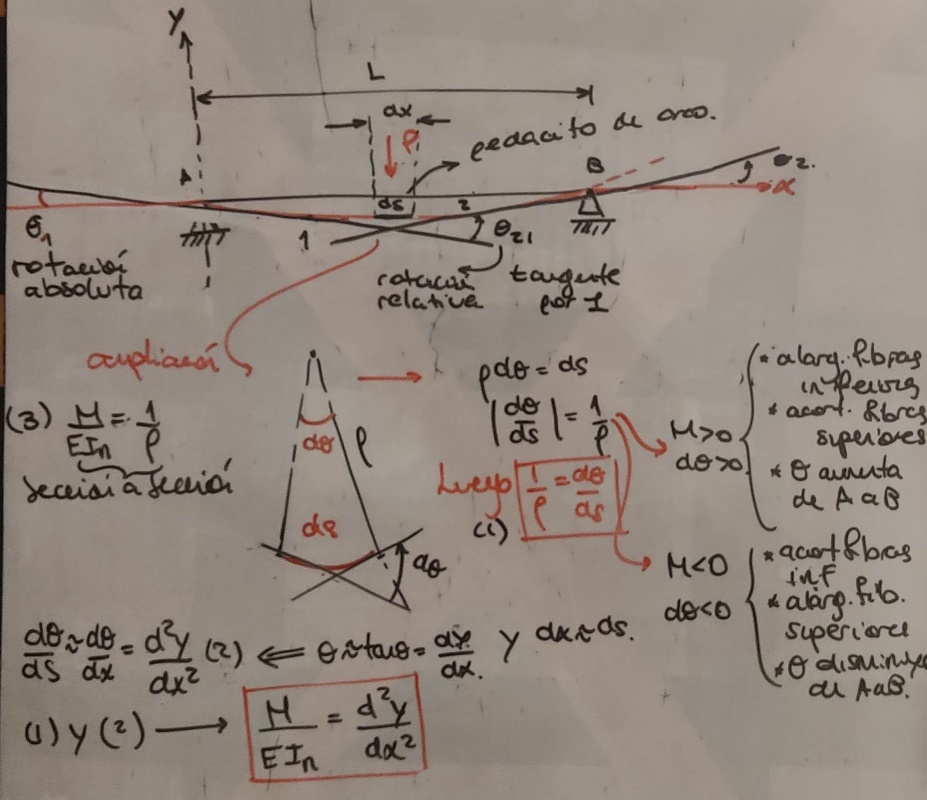 y
L
dx
ρ
pedacito de arco.
A
B
θ2.
x
ds
2
θ1
1
θ21
rotació
absoluta
rotació
relativa
tangente
por 1
ampliació
ρdθ = ds
(3) M/EIn = 1/ρ
sección a sección
dθ
ρ
|dθ/ds| = 1/ρ
Luego 1/ρ = dθ/ds
(1)
ds
dθ
M>0
dθ>0
* alarg. fibras
inferiores
* acort. fibras
superiores
* θ aumenta
de A a B
M<0
dθ<0
* acort fibras
inf
* alarg. fib.
superiores
* θ disminuye
de A a B.
dθ/ds ≈ dθ/dx = d²y/dx² (2) ⇐ θ ≈ tanθ = dy/dx. y dx ≈ ds.
(1) y (2) → M/EIn = d²y/dx²